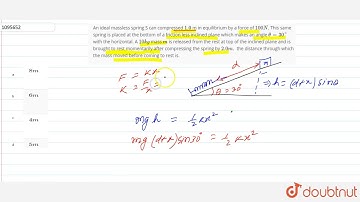 1095652
An ideal massless spring S can compressed 1.0 m in equilibrium by a force of 100N. This same
spring is placed at the bottom of a friction less inclined plane which makes an angle θ = 30°
with the horizontal. A 10kg mass m is released from the rest at top of the inclined plane and is
brought to rest momentarily after compressing the spring by 2.0m. the distance through which
the mass moved before coming to rest is.
8m
6m
4m
5m
F = Kx
K = F/x =
θ = 30°
m
⇒ h = (d+x) sinθ
mgh = 1/2 Kx²
mg (d+x) sin30° = 1/2 Kx²
doubtnut